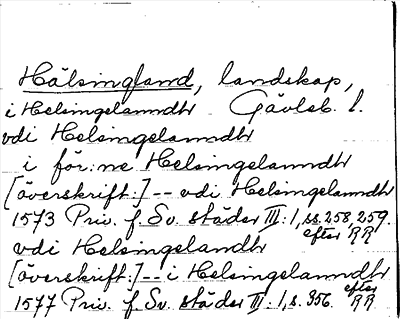 Hälsingland, landskap,
i Helsingelanndtr Gävleb. l.
vdi Helsingelanndtr
i för:ne Helsingelanndtr
[överskrift:] -- vdi Helsingelanndtr
1573 Priv. f. Sv. städer III:1, ss. 258, 259.
efter RR
vdi Helsingelandtr
[överskrift:] -- i Helsingelanndtr
1577 Priv. f. Sv. städer III:1, s. 356. efter RR